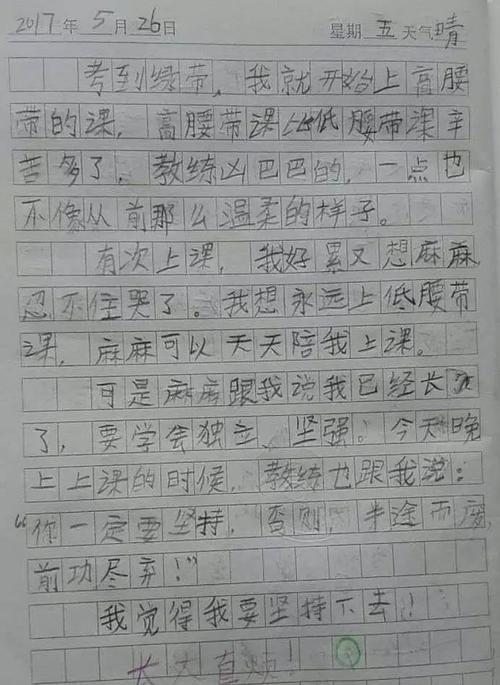 2017年5月26日 星期五天气晴
考到绿带，我就开始上高腰
带的课，高腰带课比低腰带课辛
苦多了，教练凶巴巴的，一点也
不像从前那么温柔的样子。
有次上课，我好累又想麻麻
忍不住哭了。我想永远上低腰带
课，麻麻可以天天陪我上课。
可是麻麻跟我说我已经长大
了，要学会独立、坚强。今天晚
上上课的时候，教练也跟我说：
“你一定要坚持，否则半途而废
前功尽弃！”
我觉得我要坚持下去！
长大真烦！